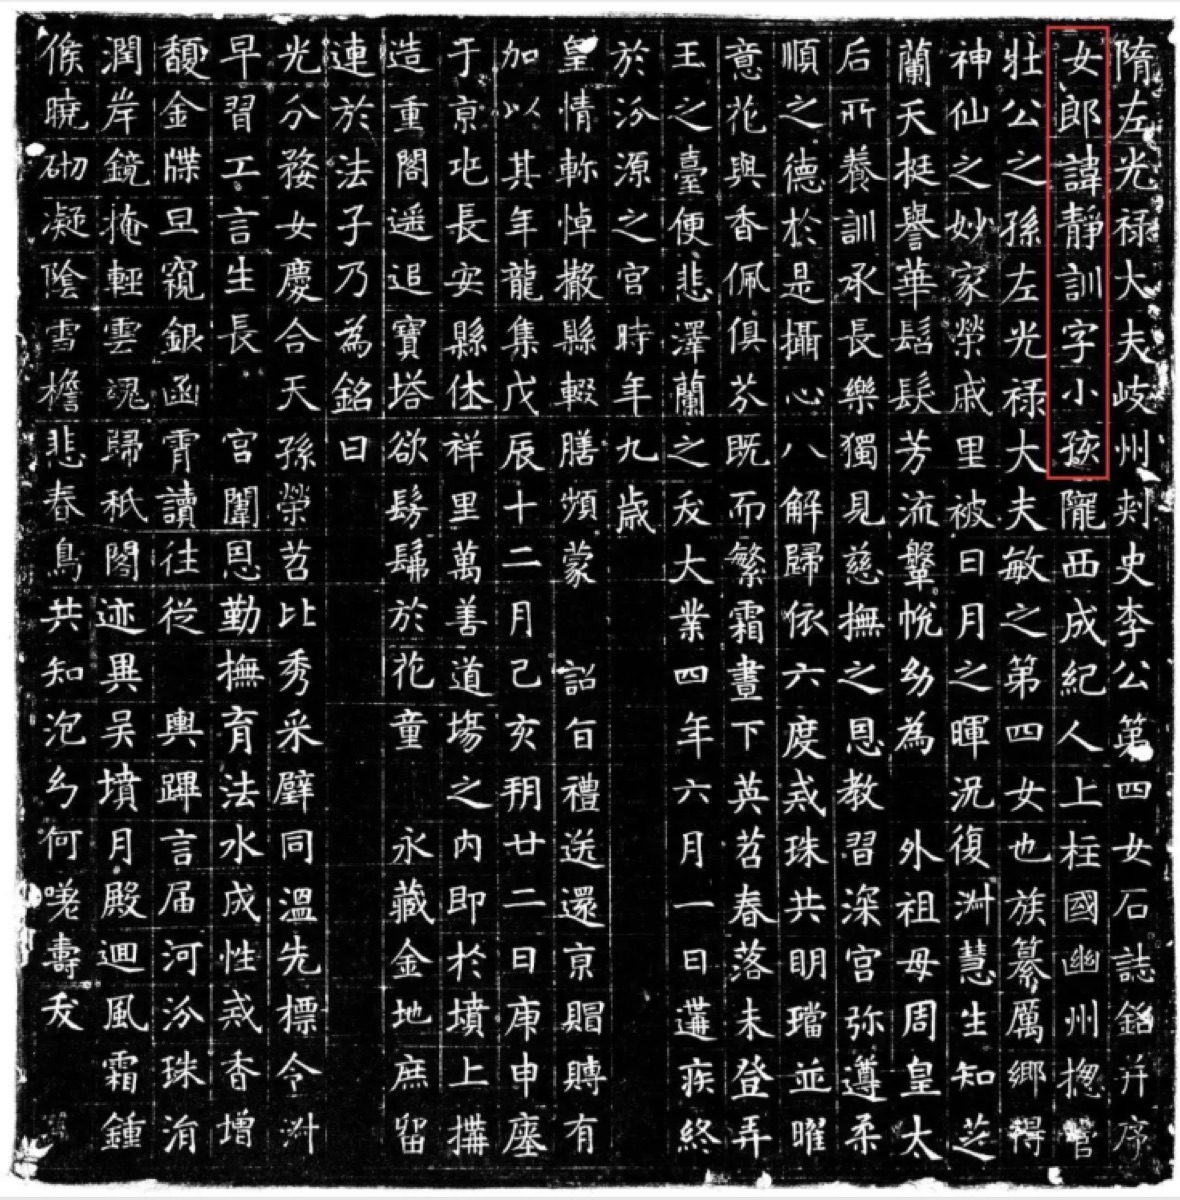 隋左光禄大夫岐州刾史李公第四女石誌銘并序
女郎諱靜訓字小孩隴西成紀人上柱國幽州揔管
壯公之孫左光禄大夫敏之第四女也族纂厲鄉得
神仙之妙家榮戚里被日月之暉況復淑慧生知芝
蘭天挺譽華髫髮芳流鞶帨幼為 外祖母周皇太
后所養訓承長樂獨見慈撫之恩教習深宮弥遵柔
順之德於是攝心八解歸依六度戒珠共明璫並曜
意花與香佩俱芬既而繁霜晝下英苕春落未登弄
玉之臺便悲澤蘭之夭大業四年六月一日遘疾終
於汾源之宮時年九歲
皇情軫悼撤縣輟膳頻蒙 詔旨禮送還京賵賻有
加以其年龍集戊辰十二月己亥朔廿二日庚申瘞
于京兆長安縣休祥里萬善道場之内即於墳上搆
造重閣遥追寶塔欲髣髴於花童 永藏金地庶留
連於法子乃為銘曰
光分婺女慶合天孫榮苕比秀采璧同溫先標令淑
早習工言生長 宮闈恩勤撫育法水成性戒香增
馥金牒旦窺銀函霄讀往從 輿蹕言届河汾珠涓
潤岸鏡掩輕雲魂歸秖閣迹異吴墳月殿迴風霜鍾
候曉砌凝陰雪檐悲春鳥共知泡幻何嗟壽夭